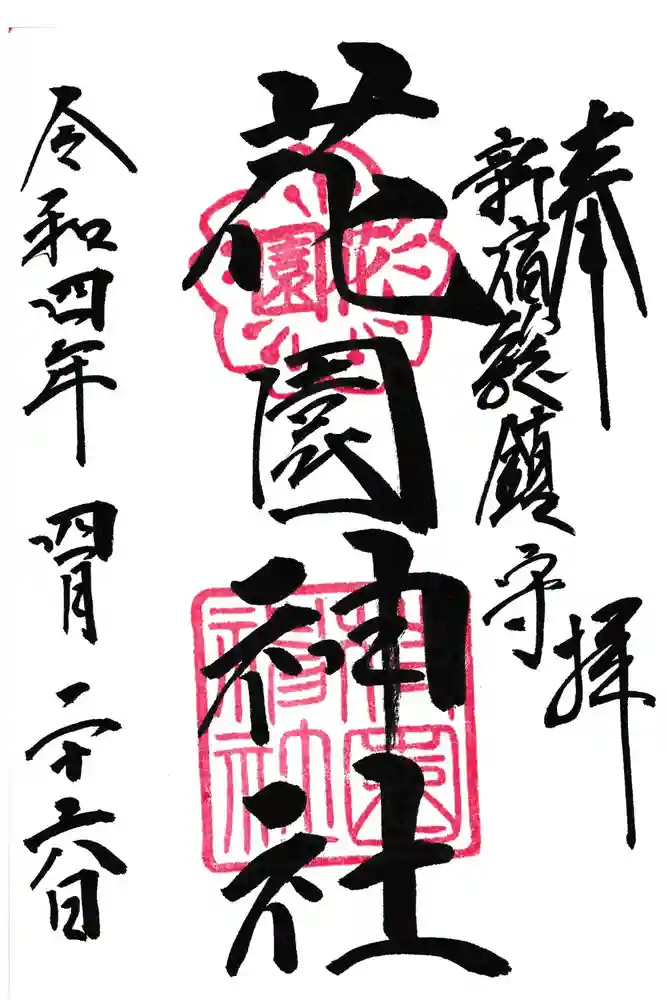 奉拝
新宿総鎮守
花園神社
花園
花園神社
令和四年 四月 二十六日